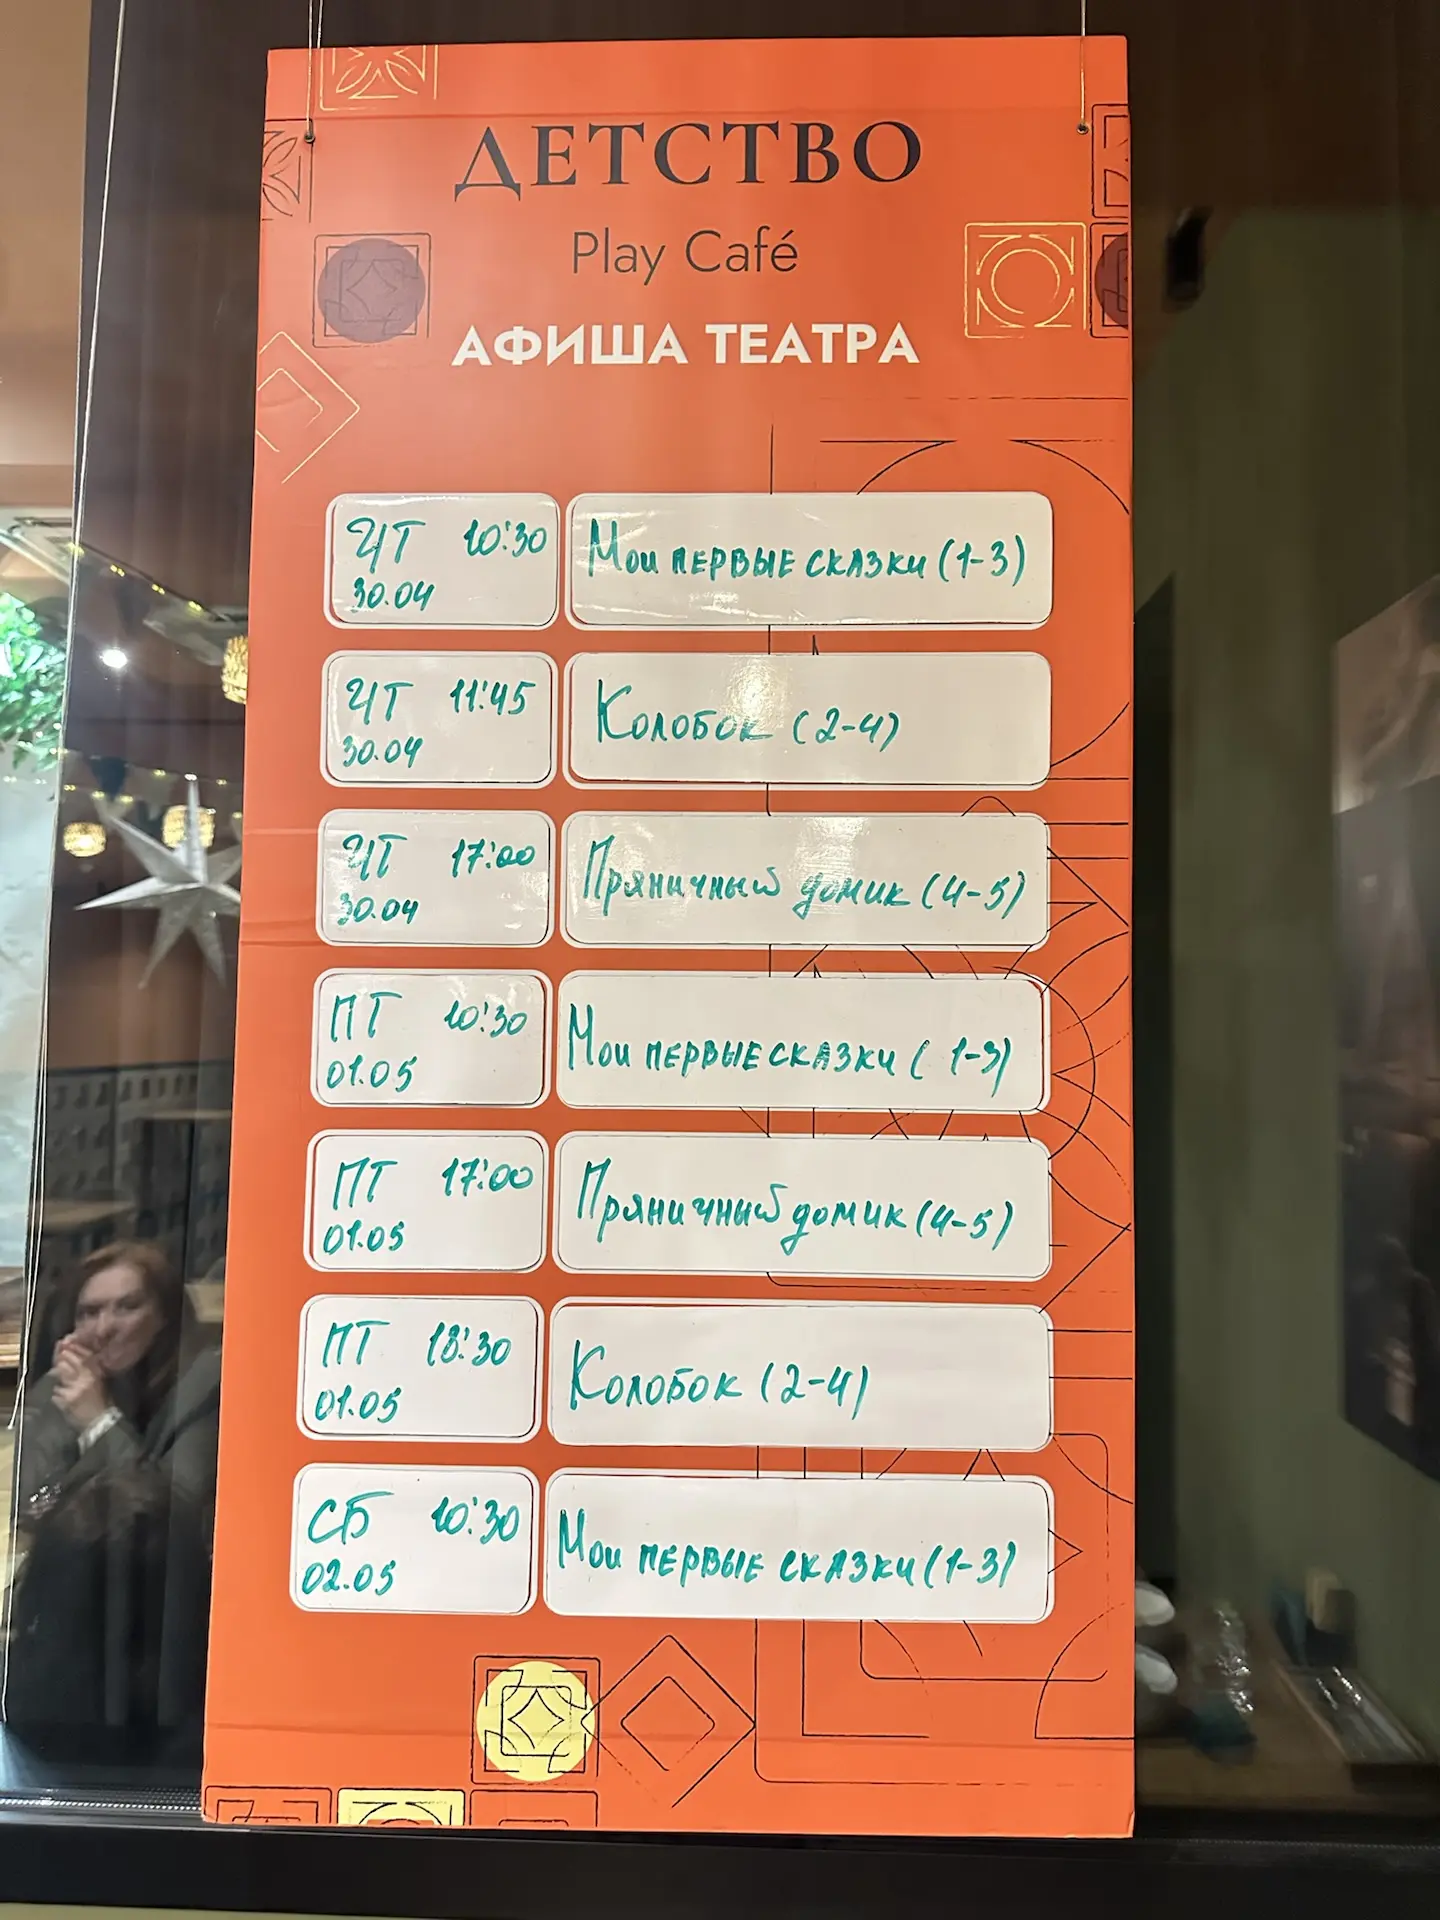 ДЕТСТВО
Play Café
АФИША ТЕАТРА
ЧТ 10:30
30.04
Мои первые сказки (1-3)
ЧТ 11:45
30.04
Колобок (2-4)
ЧТ 17:00
30.04
Пряничный домик (4-5)
ПТ 10:30
01.05
Мои первые сказки ( 1-3)
ПТ 17:00
01.05
Пряничный домик (4-5)
ПТ 18:30
01.05
Колобок (2-4)
СБ 10:30
02.05
Мои первые сказки (1-3)